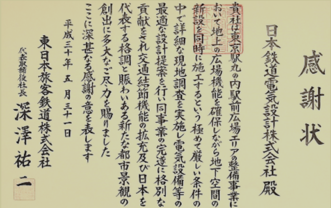 感謝状
日本鉄道電気設計株式会社 殿
貴社は東京駅丸の内駅前広場エリアの整備事業に
おいて地上の広場機能を確保しながら地下空間の
新設を同時に施工するという極めて厳しい条件の
中で詳細な現地調査を実施し電気設備等の
最適な設計提案を行い同事業の完遂に格別な
貢献をされ交通結節機能の拡充及び日本を
代表する格調と賑わいあふれる新たな都市景観の
創出に多大なご尽力を賜りました
ここに深甚なる感謝の意を表します
平成三十年 五月 三十一日
東日本旅客鉄道株式会社
代表取締役社長 深澤祐二